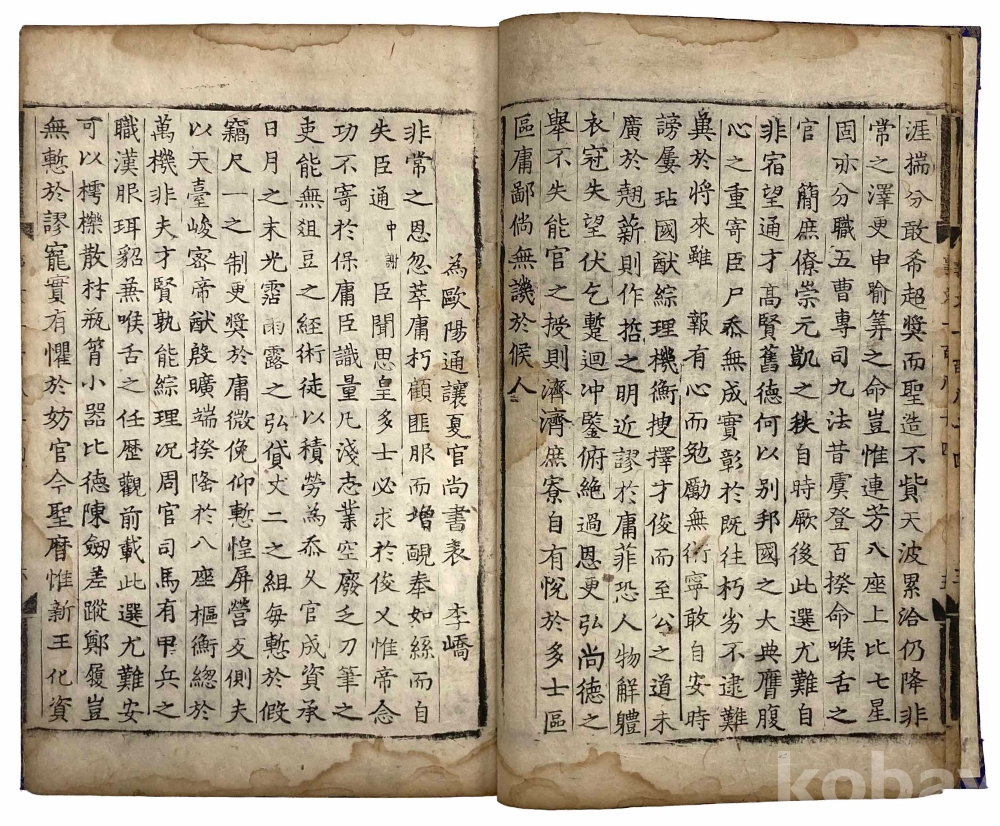 涯揣分敢希超奬而聖造不貲天波累洽仍降非
常之澤更申踰筭之命豈惟連芳八座上比七星
固亦分職五曹專司九法昔虞登百揆命喉舌之
官 簡庶僚崇元凱之秩自時厥後此選尤難自
非宿望通才髙賢舊德何以别邦國之大典膺腹
心之重寄臣尸忝無成實彰於既往朽劣不逮難
兾於將來雖 報有心而勉勵無術寧敢自安時
謗屢玷國猷綜理機衡捜擇才俊而至公之道未
廣於翹薪則作哲之明近謬於庸菲恐人物解體
衣冠失望伏乞蹔迴冲鑒俯絶過恩更弘尚德之
舉不失能官之授則濟濟庶寮自有恱於多士區
區庸鄙倘無譏於候人
為歐陽通讓夏官尚書表 李嶠
非常之恩忽萃庸朽顧匪服而增靦奉如絲而自
失臣通 中謝 臣聞思皇多士必求於俊乂惟帝念
功不寄於保庸臣識量凡淺志業空廢乏刀筆之
吏能無俎豆之經術徒以積勞為忝久官成資承
日月之末光霑雨露之弘貸丈二之組每慙於假
竊尺一之 制更奬於庸微俛仰慙惶屏營反側夫
以天臺峻密帝猷啓曠端揆隆於八座樞衡緫於
萬機非夫才賢孰能綜理况周官司馬有甲兵之
職漢服珥貂兼喉舌之任歴觀前載此選尤難安
可以樗櫟散材瓶筲小器比德陳劒差蹤鄭履豈
無慙於謬寵實有懼於妨官今聖曆惟新王化資
kobay